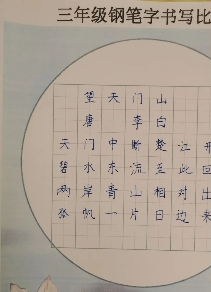 三年级钢笔字书写比
望天门山
唐 李白
天门中断楚江开
碧水东流至此回
两岸青山相对出
孤帆一片日边来